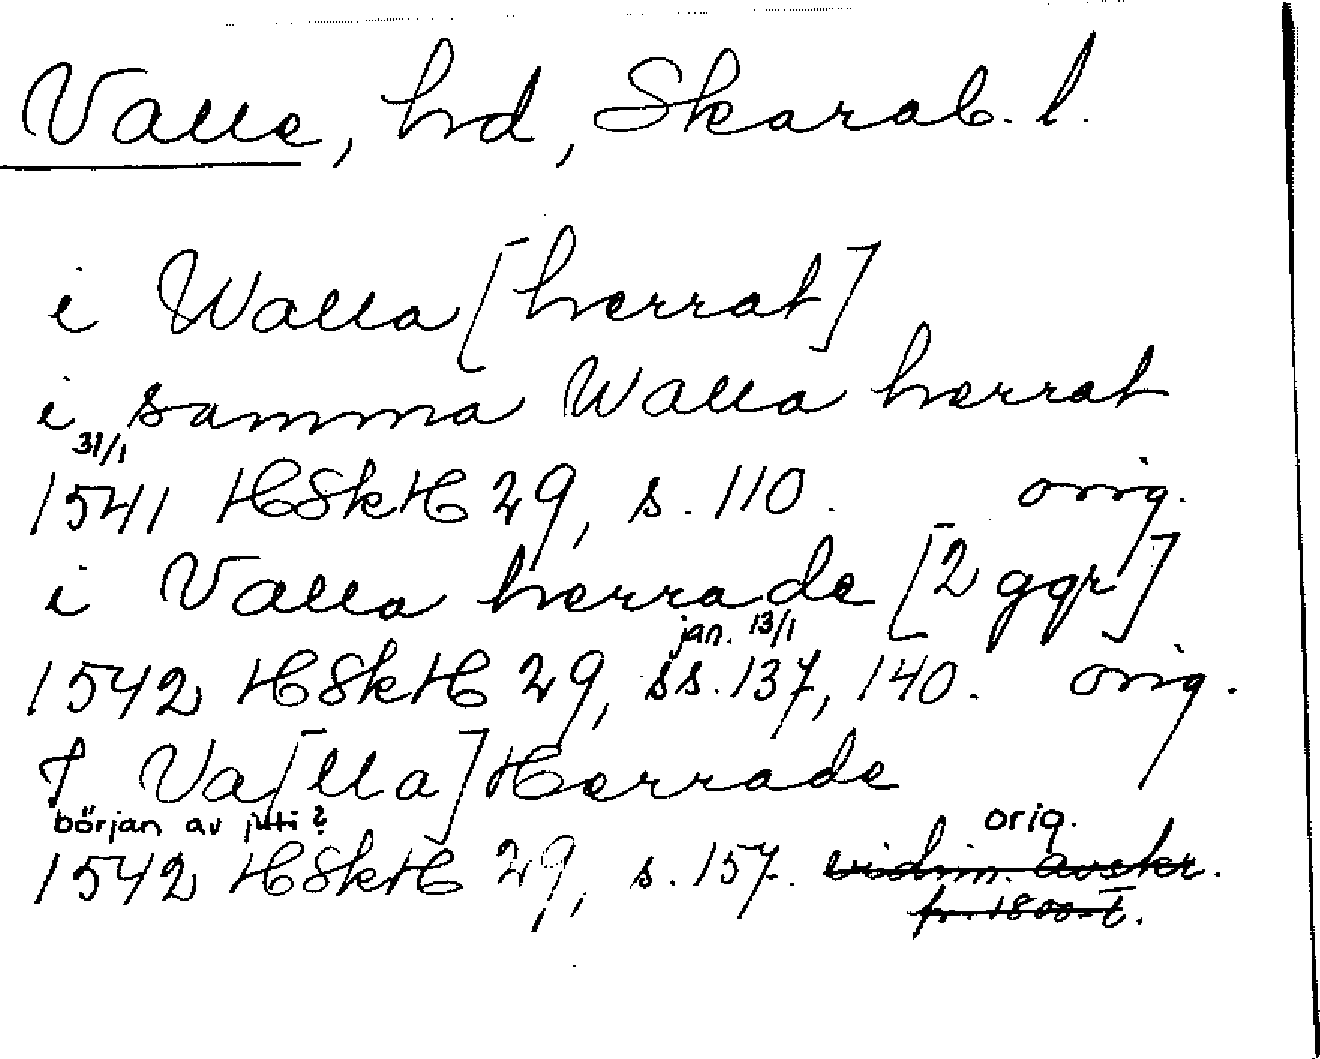 Valle, hd, Skarab. l.
i Walla [herrat]
i samma Walla herrat
31/1
1541 HSkH 29, s. 110. orig.
i Valla herrade [2 ggr]
jan. 13/1
1542 HSkH 29, ss. 137, 140. orig.
Va[lla] Herrade
början av juli? orig.
1542 HSkH 29, s. 157. vidim. avskr.
fr. 1800-t.